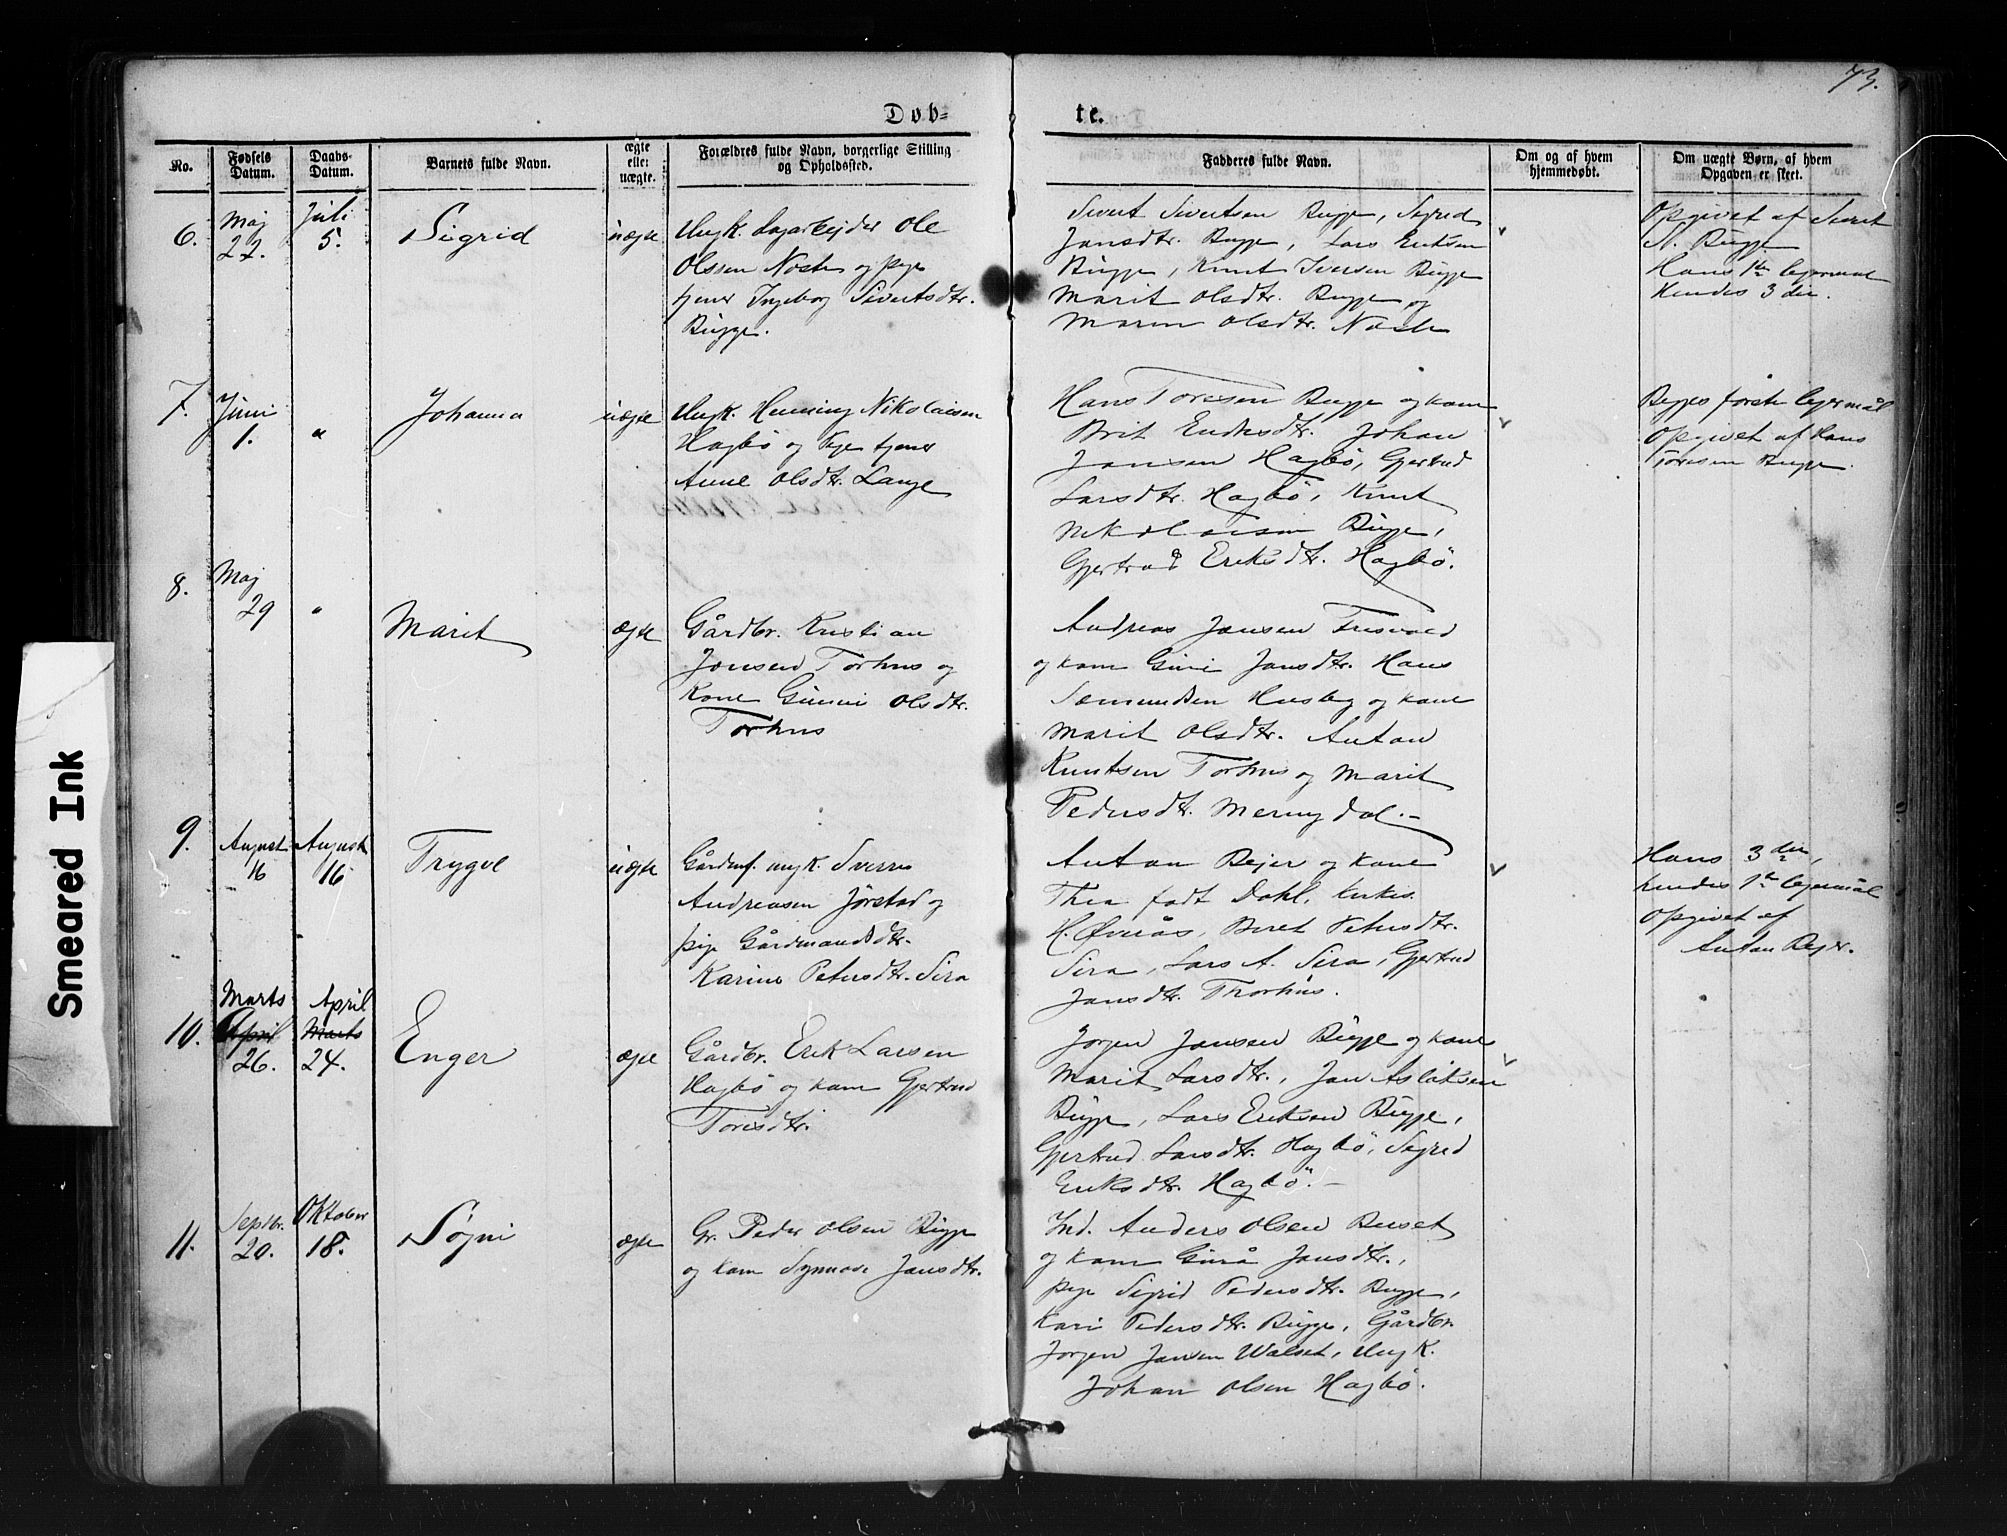 73.
Døb-
te.
No.
Fødsels Datum.
Daabs-Datum.
Barnets fulde Navn.
ægte eller uægte.
Forældres fulde Navn, borgerlige Stilling og Opholdssted.
Fadderes fulde Navn.
Om og af hvem hjemmedøbt.
Om uægte Børn, af hvem Opgaven er skeet.
6.
Maj
22.
Juli
5.
Sigrid
uægte
Ungk. dagarbejder Ole
Olssen og pige
tjener Ingeborg Sivertsdtr.
Bugge.
Sivert Sivertsen Bugge, Sigrid
Jansdtr. Bugge, Lars Eriksen
Bugge, Knut Iversen Bugge
Marit Olsdtr. Bugge og
Olsdtr.
Opgivet af Sivert
Bugge
Hans 1ste lejermaal
Hendes 3die.
7.
Juni
1.
"
Johanna
uægte
Ungk. Henning Nikolaisen
Hagbø og Pige tjener
Anne Olsdtr. Lange
Hans Toresen Bugge og kone
Brit Eriksdtr. Johan
Jansen Hagbø, Gjertrud
Larsdtr. Hagbø, Knut
Nikolaisen Bugge,
Gjertrud Eriksdtr. Hagbø.
Begges første lejermål
Opgivet af Hans
Toresen Bugge.
8.
Maj
29
"
Marit
ægte
Gårdbr. Kristian
Jonsen Torhus og
Kone Gunni Olsdtr.
Torhus
Andreas Jansen
og kone Guri Jansdtr. Hans
Sæmundsen Husby og kone
Marit Olsdtr. Anton
Knutsen Torhus og Marit
Pedersdtr. .-
9.
August
16
August
16.
Trygve
uægte
Gårdmf. ungk. Sverre
Andreasen Jørstad og
pige Gårdmandsdtr.
Karine Petersdtr. Sira
Anton Bejer og kone
Thea født Dahl, Kirkes.
H. Øverås, Beret Petersdtr.
Sira, Lars A. Sira, Gjertrud
Jansdtr. Thorhus.
Hans 3die,
hendes 1ste lejermål
Opgivet af
Anton Bejer.
10.
Marts
April
26.
April
Marts
24.
Enger
ægte
Gårdbr. Erik Larsen
Hagbø og kone Gjertrud
Toresdtr.
Jørgen Jansen Bugge og kone
Marit Larsdtr., Jan Aslaksen
Bugge, Lars Eriksen Bugge,
Gjertrud Larsdtr. Hagbø, Sigrid
Eriksdtr. Hagbø.-
11.
Septbr.
20.
Oktober
18.
Søgni
ægte
Gr. Peder Olsen Bugge
og kone Synnøve Jansdtr.
Ind. Anders Olsen Buset
og kone Gurå Jansdtr.,
pige Sigrid Pedersdtr. Bugge,
Kari Pedersdtr. Bugge, Gårdbr.
Jørgen Jansen Walset, Ungk.
Johan Olsen Hagbø.
Smeared Ink